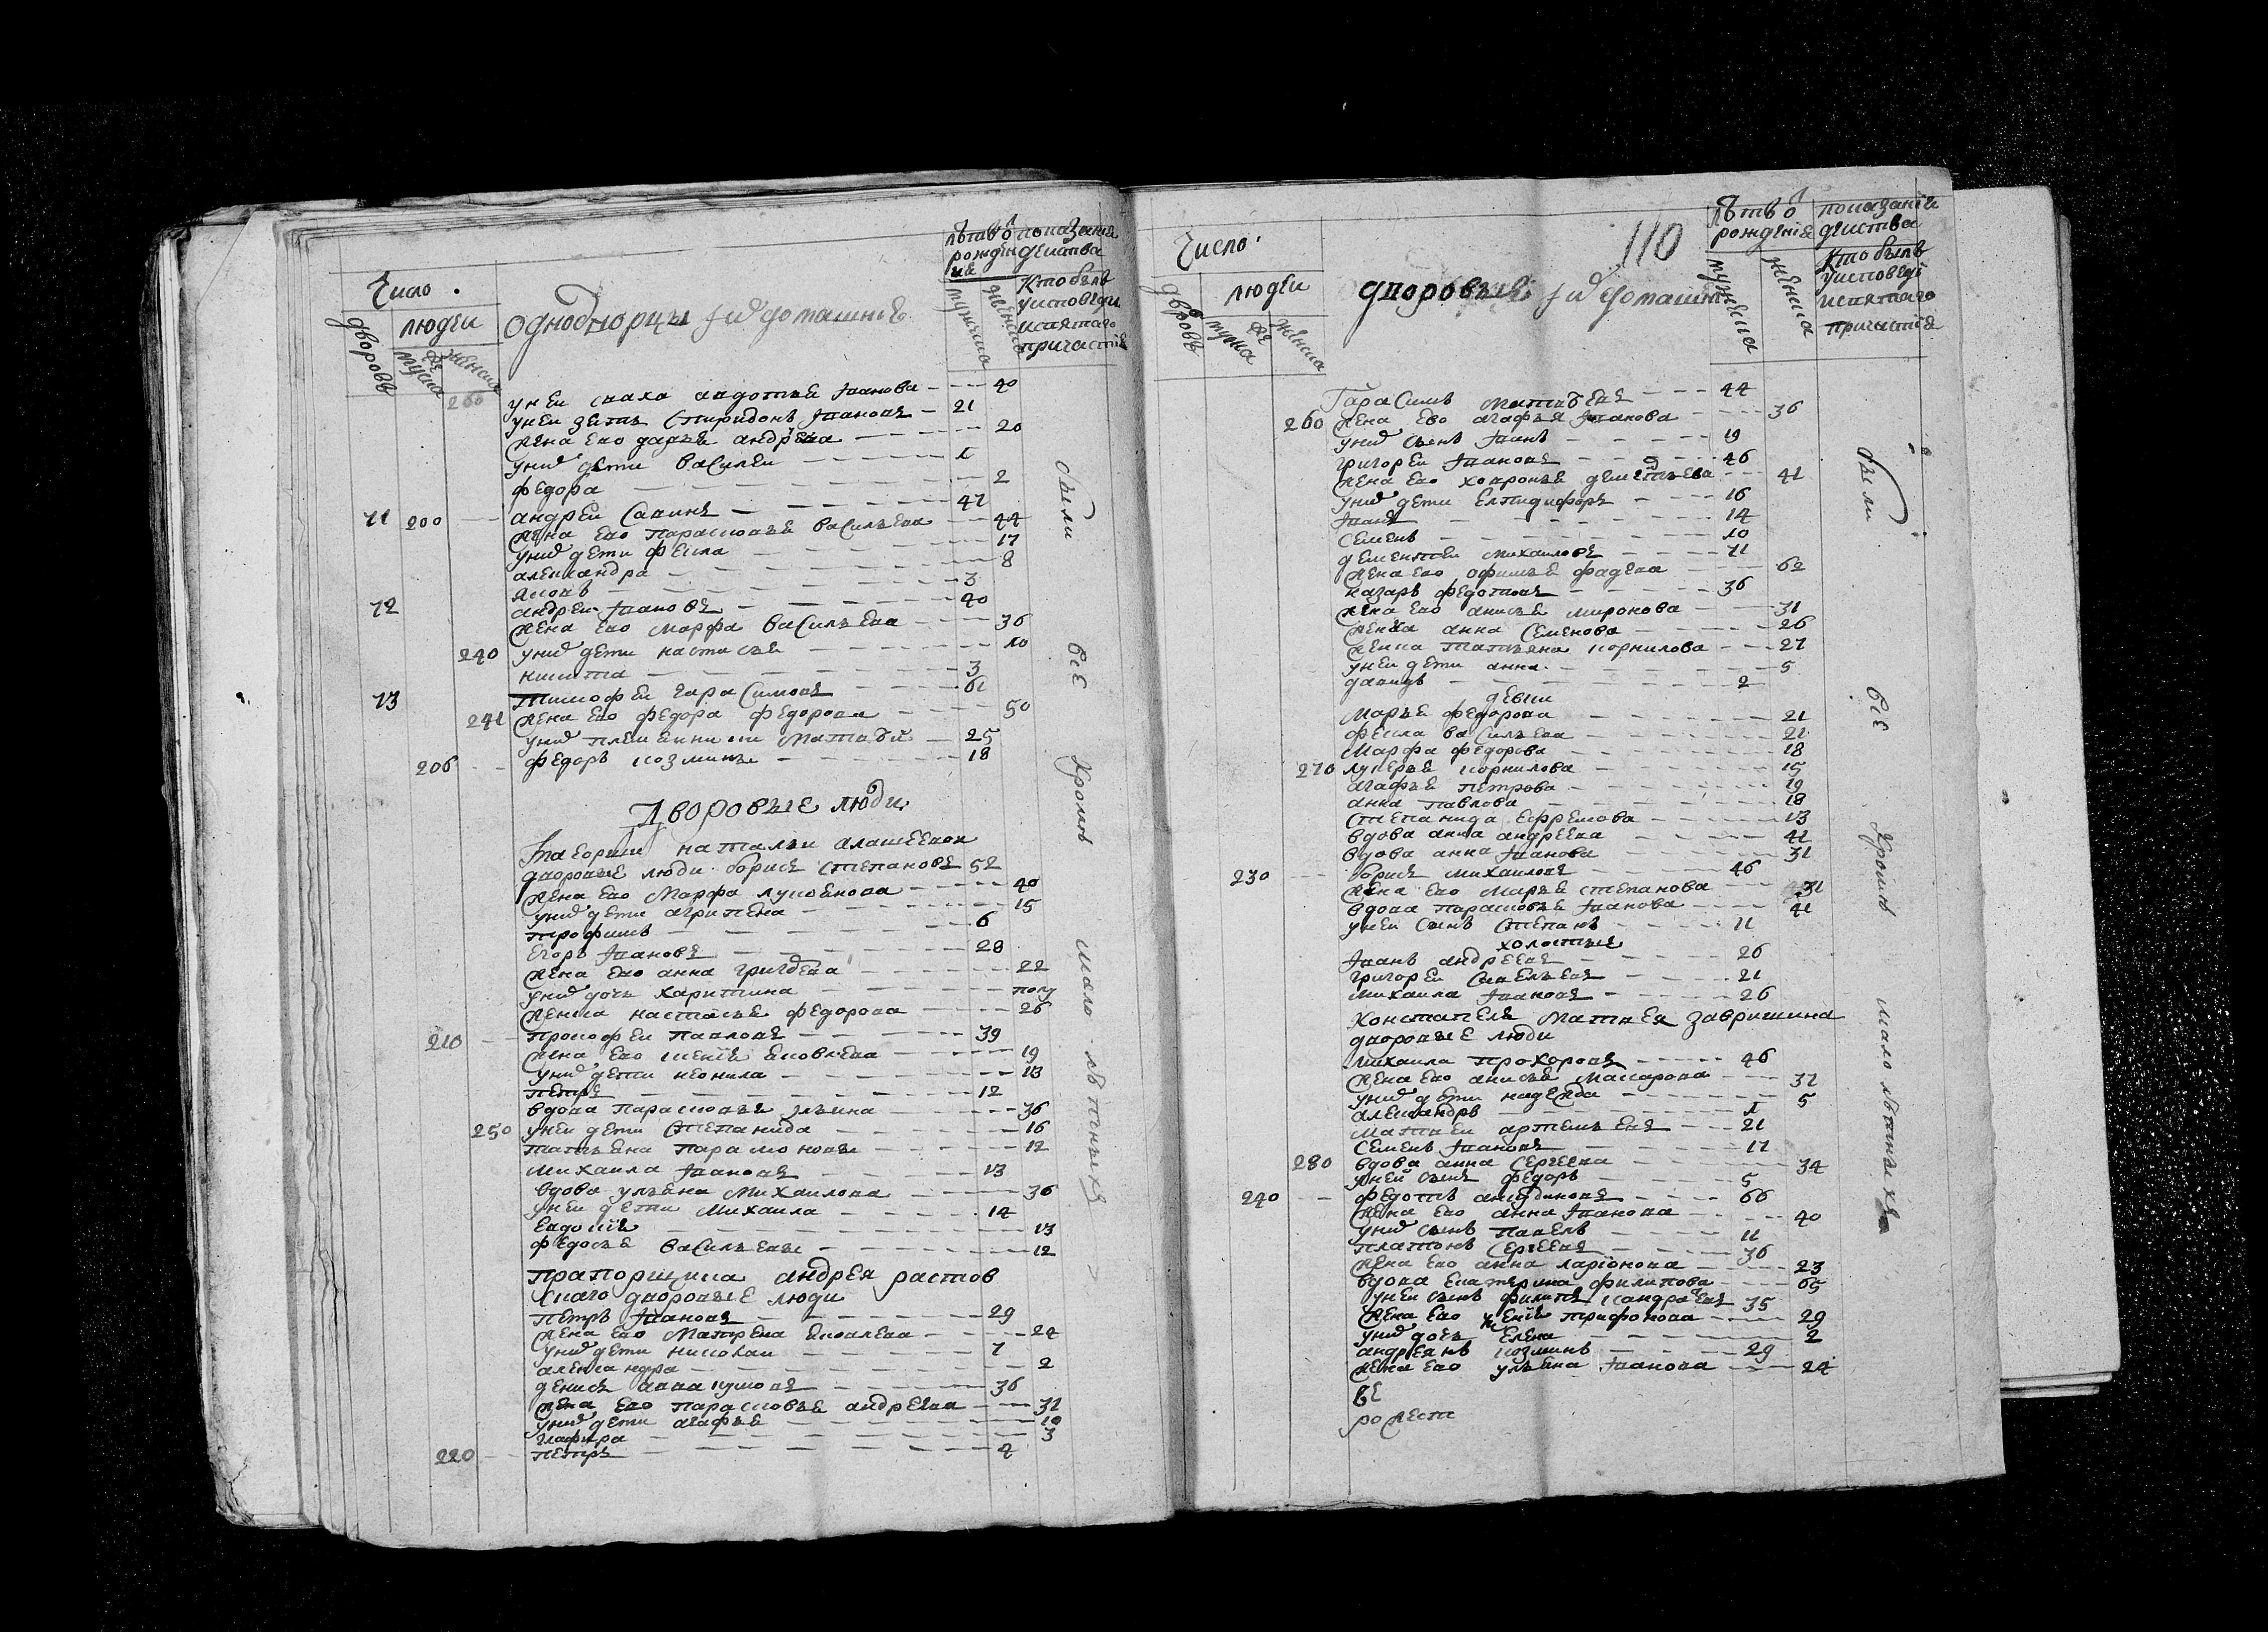 Число
людеи
дворовъ
мужеска
женска
однодворцы и домашние
лѣтъ о рождения
мужеска
женска
показание действа
кто былъ у исповеди и святаго причастия
у неи сноха авдотья Иванова 40
у неи зять Спиридонъ Ивановъ 21
жена ево дарья андрѣева 20
у них дети Василеи 1
федора 2
71 200 андреи Савинъ 47
жена ево парасковья васильева 44
у них дети фекла 17
александра 8
яковъ 3
72 андреи Ивановъ 40
жена ево Марфа Васильева 36
240 у них дети настасья 10
никита 3
73 тимофеи гарасимовъ 61
241 жена ево федора федорова 50
у них племянники Матвѣй 25
206 федоръ козмины 18
Дворовые люди
натальи
дворовые люди борисъ степановъ 52
жена ево Марфа лукьянова 40
у них дети агрипена 15
трофимъ 6
Егоръ Ивановъ 28
жена ево анна григорева 22
у них дочь харитина полу
женка настасья федорова 26
210 прокофеи павловъ 39
жена ево ксения яковлева 19
у них дети неонила 13
петръ 12
вдова парасковья ильина 36
250 у неи дети степанида 16
татьяна парамоновы 12
михаила Ивановъ 13
вдова ульяна Михаилова 36
у неи дети Михаила 14
Евдокия 13
федосья васильевы 12
прапорщика андрея растов
скаго дворовые люди
петръ Ивановъ 29
жена ево матрена яковлева 24
у них дети николаи 7
александра 2
денисъ аввакумовъ 36
жена ево парасковья андреева 31
у них дети агафья 10
глафира 3
220 петръ 4
были все кроме мало лѣтныхъ
110
Число
людеи
дворовъ
мужеска
женска
дворовые и домашни
лѣтъ о рождения
мужеска
женска
показание действа
кто былъ у исповеди и святаго причастия
Гарасимъ матвѣевъ 44
260 жена ево агафья Иванова 36
у них сынъ Иванъ 19
григореи Ивановъ 46
жена ево ховронья дементьева 41
у них дети Елпидифоръ 16
Иванъ 14
семенъ 10
дементеи михаиловъ 71
жена ево офимья фадева 62
назаръ федотовъ 36
жена ево анисья миронова 31
женка анна семенова 26
женка татьяна корнилова 27
у неи дети анна 5
давидъ 2
девки
Марья федорова 21
фекла васильева 21
Марфа федорова 18
270 лукерья корнилова 15
агафья петрова 19
анна павлова 18
степанида Ефремова 13
вдова анна андреева 41
вдова анна Иванова 31
230 борисъ михаиловъ 46
жена ево Марья степанова 31
вдова парасковья Иванова 41
у неи сынъ степанъ 11
холостые
Иванъ андреевъ 26
григореи савельевъ 21
михаила Ивановъ 26
констапеля Матвея завришина
дворовые люди
михаила прохоровъ 46
жена ево анисья Макарова 37
у них дети надежда 5
александръ 1
матвеи артемьевъ 21
семенъ Ивановъ 17
280 вдова анна Сергеева 34
у неи сынъ федоръ 5
240 федотъ 66
жена ево анна Иванова 40
у них сынъ павелъ 11
платонъ Сергеевъ 36
жена ево анна ларионова 23
вдова екатерина филипова 65
у неи сынъ филипъ кандратевъ 35
жена ево ксения трифонова 29
у них дочь Елена 2
андреянъ козминъ 29
жена ево ульяна Иванова 24
ве
рожест
были все кроме мало лѣтныхъ